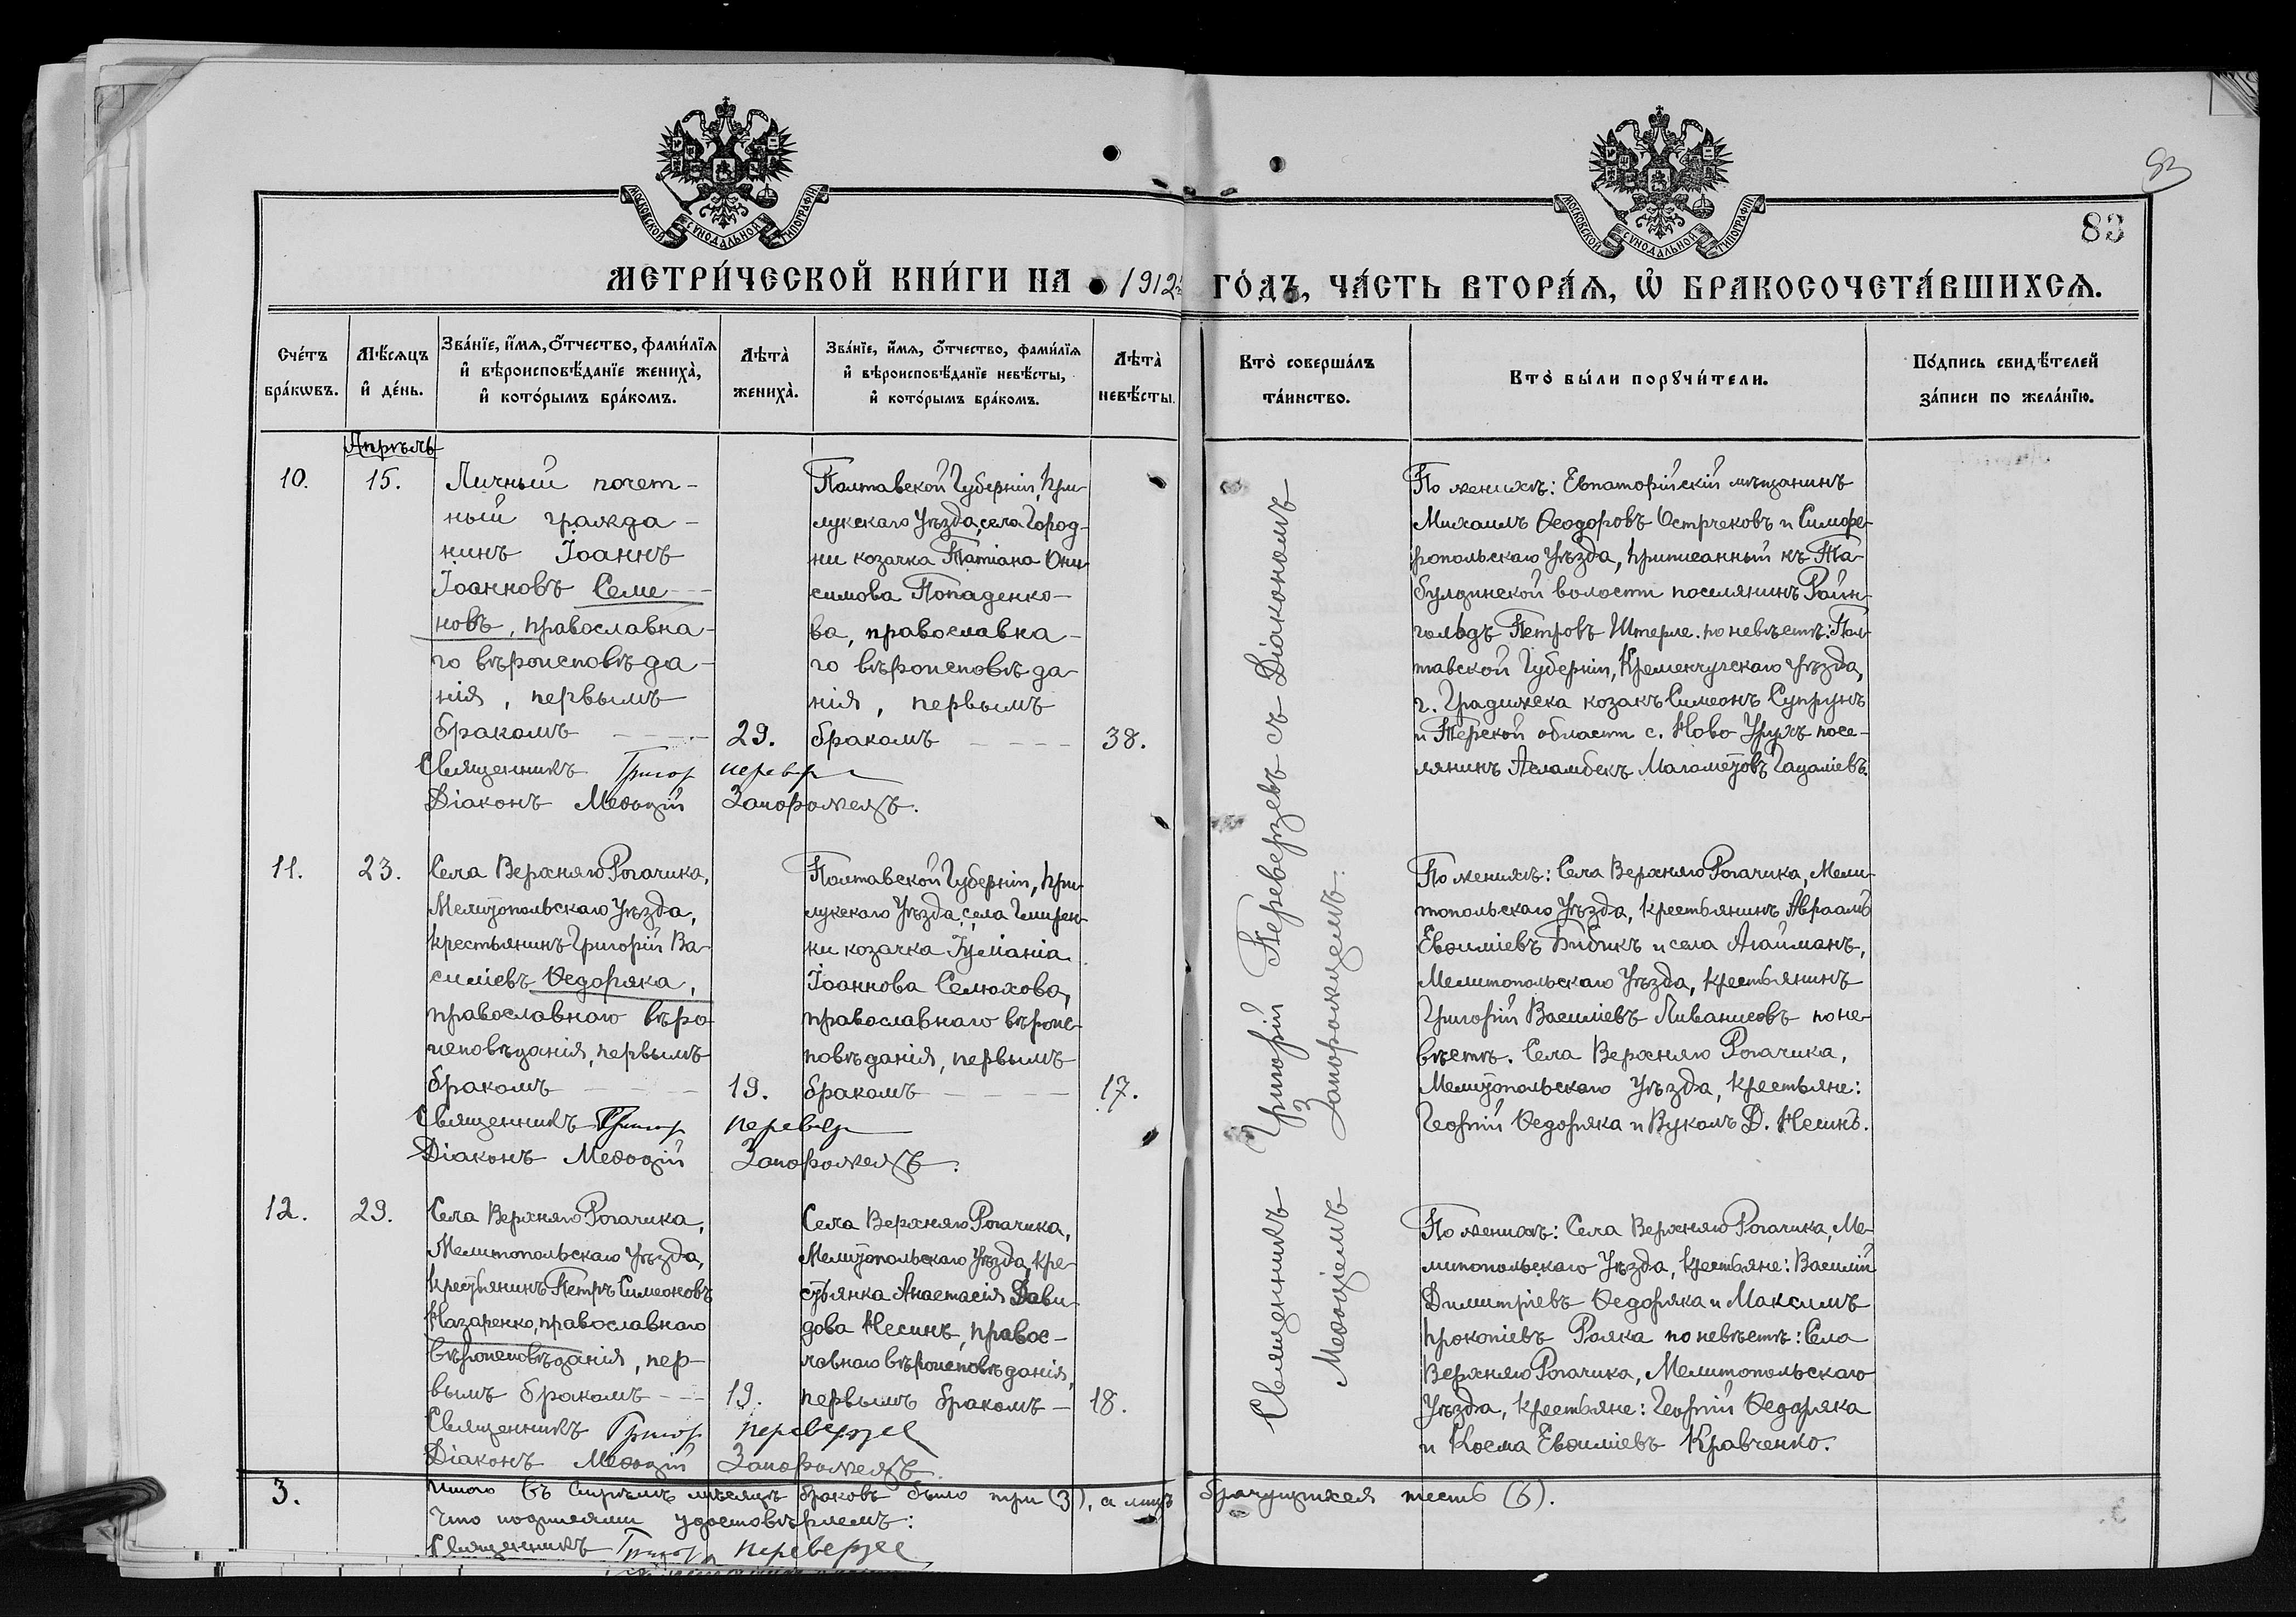 МОСКОВСКОЙ СѴНОДАЛЬНОЙ ТИПОГРАФІИ
МОСКОВСКОЙ СѴНОДАЛЬНОЙ ТИПОГРАФІИ
83
83
МЕТРИ́ЧЕСКОЙ КНИ́ГИ НА 1912й ГО́ДЪ, ЧА́СТЬ ВТОРА́Я, Ѡ҆ БРАКОСОЧЕТА́ВШИХСЯ.
Сче́тъ
бра́кѡвъ.
Мѣ́сяцъ
и҆ де́нь.
Зва́нїе, и҆́мя, ѻ҆́тчество, фами́лїя
и҆ вѣроисповѣ́данїе жениха̀,
и҆ кото́рымъ бра́комъ.
Лѣта̀
жениха̀.
Зва́нїе, и҆́мя, ѻ҆́тчество, фами́лїя
и҆ вѣроисповѣ́данїе невѣ́сты,
и҆ кото́рымъ бра́комъ.
Лѣта̀
невѣ́сты.
Кто̀ соверша́лъ
та́инство.
Кто̀ бы́ли порꙋчи́тели.
По́дпись свидѣ́телей
за́писи по жела́нїю.
Апрѣль
10.
15.
Личный почет-
ный гражда-
нинъ Іоаннъ
Іоанновъ Семе-
новъ, православна-
го вѣроисповѣда-
нія, первымъ
бракомъ
29.
Полтавской Губерніи, При-
лукскаго Уѣзда, села Город-
ни козачка Татіана Они-
симова Попаденко-
ва, православна-
го вѣроисповѣда-
нія, первымъ
бракомъ
38.
Священникъ Григор
Діаконъ Меѳодій Запорожецъ.
По женихѣ: Евпаторійскій мѣщанинъ
Михаилъ Ѳеодоровъ Острчековъ и Симфе-
ропольскаго Уѣзда, приписанный къ Та-
булдинской волости поселянинъ Райн-
гольдъ Петровъ Штерле. по невѣстѣ: Пол-
тавской Губерніи, Кременчугскаго Уѣзда,
г. Градижска козакъ Симеонъ Супрунъ
и Терской области с. Ново Урухъ посе-
лянинъ Асламбекъ Магометовъ Гацаліевъ.
11.
23.
Села Верхняго Рогачика,
Мелитопольскаго Уѣзда,
крестьянинъ Григорій Ва-
силіевъ Ѳедоряка,
православнаго вѣро-
исповѣданія, первымъ
бракомъ
19.
Полтавской Губерніи, При-
лукскаго Уѣзда, села Гмирян-
ки козачка Іуліанія
Іоаннова Селюхова,
православнаго вѣроис-
повѣданія, первымъ
бракомъ
17.
Священникъ Григор
Діаконъ Меѳодій Запорожецъ.
По женихѣ: Села Верхняго Рогачика, Мели-
топольскаго Уѣзда, крестьянинъ Авраамъ
Евѳиміевъ Бибикъ и села Агайманъ,
Мелитопольскаго Уѣзда, крестьянинъ
Григорій Василіевъ Ливанисовъ по не-
вѣстѣ. Села Верхняго Рогачика,
Мелитопольскаго Уѣзда, крестьяне:
Георгій Ѳедоряка и Вуколъ Д. Несинъ.
12.
29.
Села Верхняго Рогачика,
Мелитопольскаго Уѣзда,
крестьянинъ Петръ Симеоновъ
Назаренко, православнаго
вѣроисповѣданія, пер-
вымъ бракомъ
19.
Села Верхняго Рогачика,
Мелитопольскаго Уѣзда, кре-
стьянка Анастасія Дави-
дова Несинъ, правос-
лавнаго вѣроисповѣданія,
первымъ бракомъ
18.
Священникъ Григор Переверзев
Діаконъ Меѳодій Запорожецъ.
По женихѣ: Села Верхняго Рогачика, Ме-
литопольскаго Уѣзда, крестьяне: Василій
Димитріевъ Ѳедоряка и Максимъ
Прокопіевъ Рояка по невѣстѣ: Села
Верхняго Рогачика, Мелитопольскаго
Уѣзда, крестьяне: Георгій Ѳедоряка
и Косма Евѳиміевъ Кравченко.
Священникъ Григорій Переверзевъ съ Діакономъ
Меѳодіемъ Запорожцемъ.
3.
Итого въ Апрѣлѣ мѣсяцѣ браковъ было три (3), а лицъ брачущихся шесть (6).
Что подписями удостовѣряемъ:
Священникъ Григор Переверзев